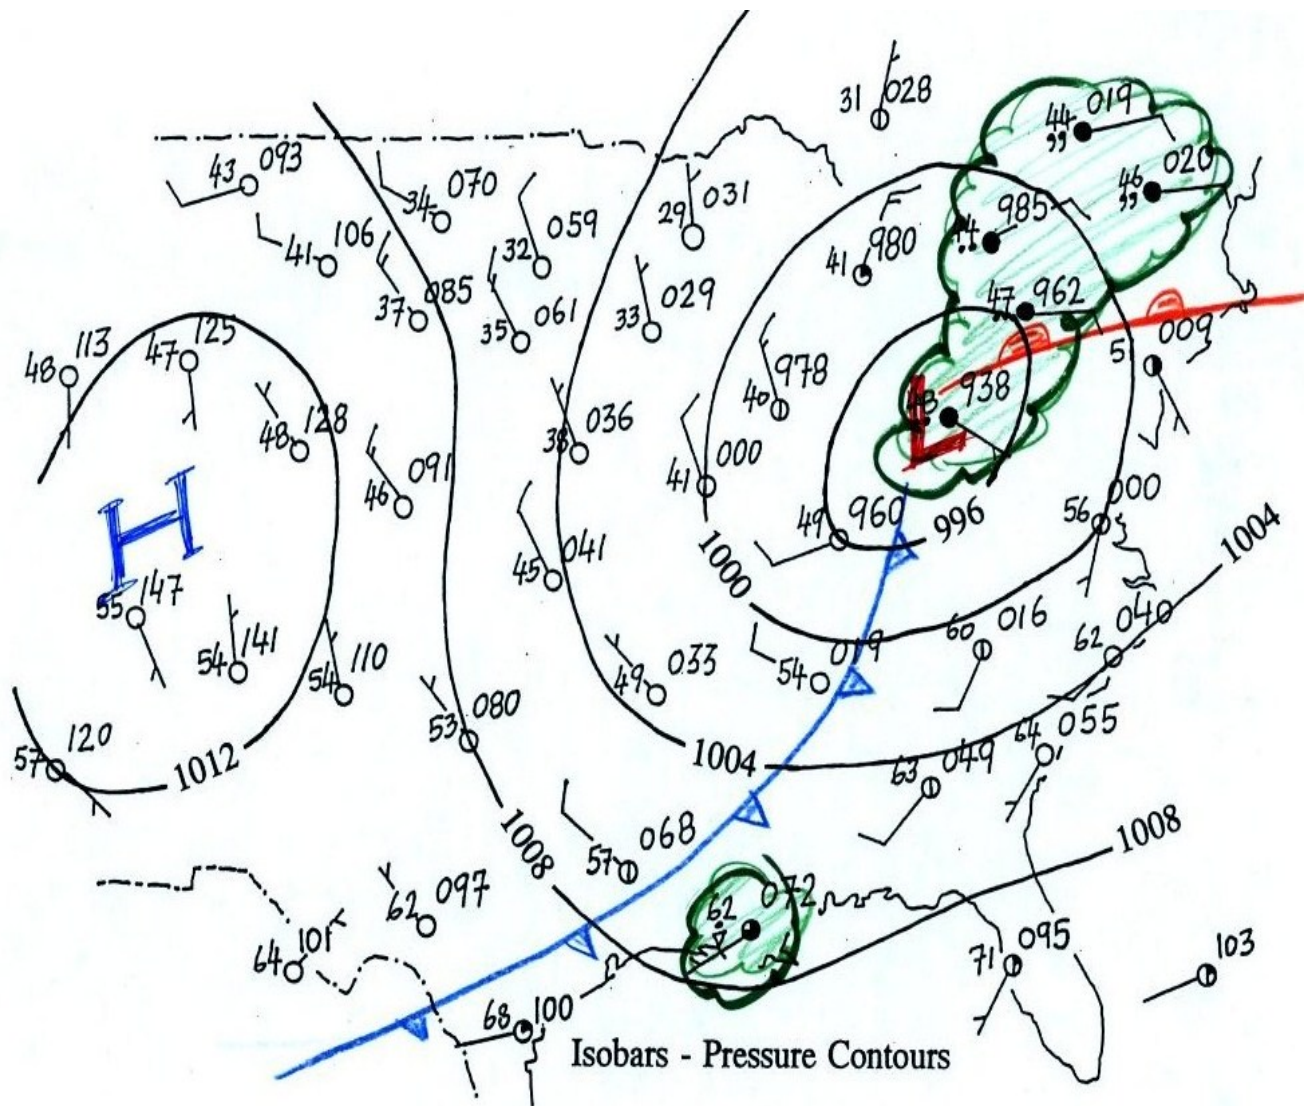 31 028
44 019
43 093
34 070
46 020
32 059
29 031
985
41 106
41 980
37 085
35 061
33 029
47 962
009
48 113
47 125
40 978
938
48 128
38 036
46 091
41 000
H
L
49 960
996
56 000
1004
45 041
1000
55 147
54 141
54 110
49 033
54 019
60 016
62 04
53 080
64 055
57 120
1012
1004
63 049
1008
57 068
1008
62 097
62 072
64 101
71 095
103
68 100
Isobars - Pressure Contours